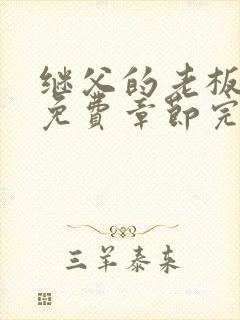 继父的老板
免費章節完
三羊泰来